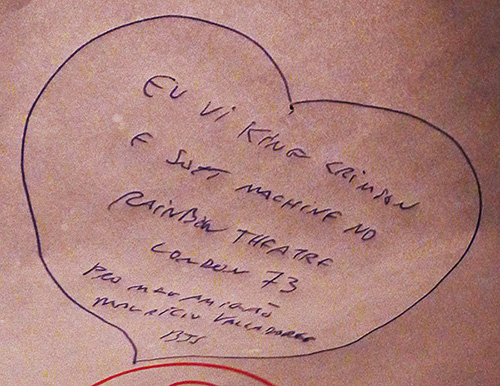 EU VI KING CRIMSON
E SOFT MACHINE NO
RAINBOW THEATRE
LONDON 73
PRO MEU AMIGÃO
MAURICIO VALLADARES
BJS